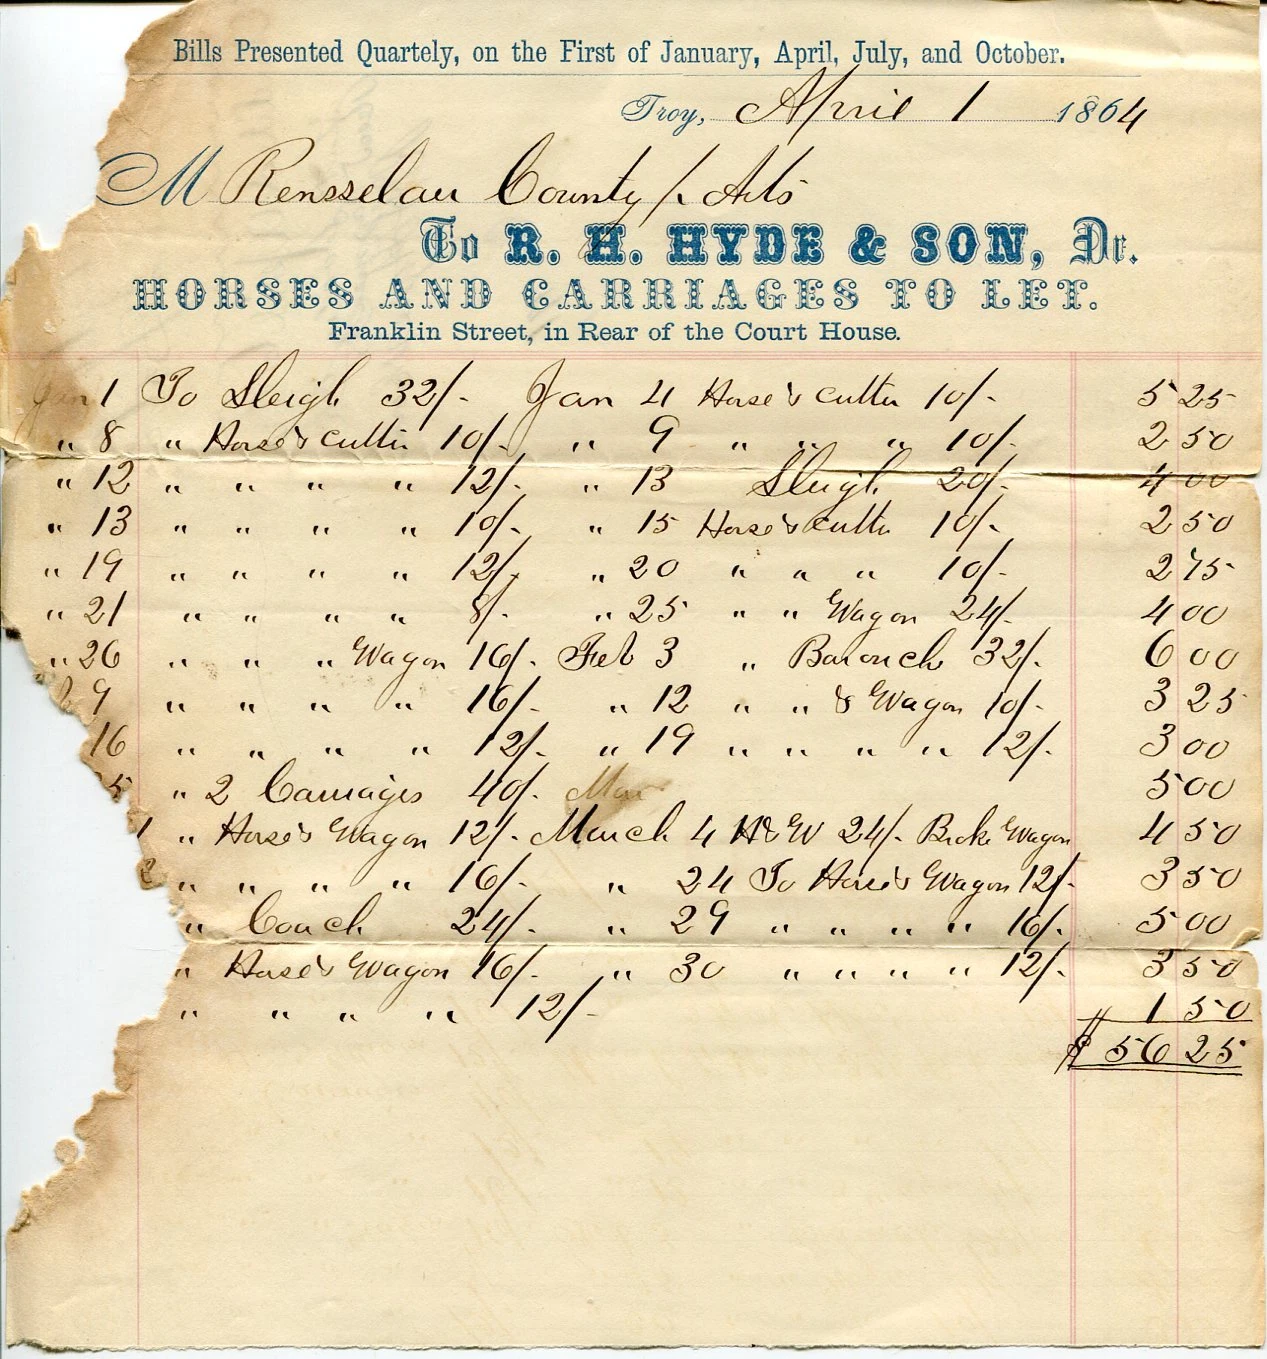 Bills Presented Quartely, on the First of January, April, July, and October.
Troy, April 1 1864
M Rensselaer County
To R. H. HYDE & SON, Dr.
HORSES AND CARRIAGES TO LET.
Franklin Street, in Rear of the Court House.
Jan 1 To Sleigh 32/- Jan 4 Horse & Cutter 10/- 5 25
" 8 " Horse & Cutter 10/- " 9 " " " 10/- 2 50
" 12 " " " " 12/- " 13 Sleigh 20/- 4 00
" 13 " " " " 10/- " 15 Horse & Cutter 10/- 2 50
" 19 " " " " 12/- " 20 " " " 10/- 2 75
" 21 " " " " 8/- " 25 " " Wagon 24/- 4 00
" 26 " " " Wagon 16/- Feb 3 " Barouch 32/- 6 00
9 " " " " 16/- " 12 " " & Wagon 10/- 3 25
16 " " " " 12/- " 19 " " " " 12/- 3 00
5 " 2 Carriages 40/- Mar 5 00
1 " Horse & Wagon 12/- March 4 H & W 24/- Broke Wagon 4 50
2 " " " " 16/- " 24 To Horse & Wagon 12/- 3 50
" Coach 24/- " 29 " " " " 16/- 5 00
" Horse & Wagon 16/- " 30 " " " " 12/- 3 50
" " " " 12/- 1 50
$ 56 25